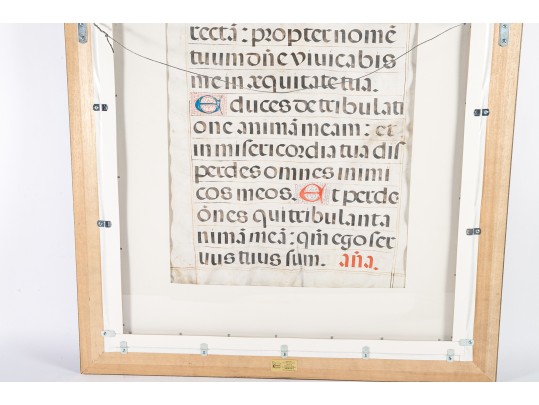 rectā: propter nomē
tuum dn̄e vivicabis
me in æquitate tua.
Educes de tribulati
one animā meam: et
in misericordia tua dis
perdes omnes inimi
cos meos. Et perde
ōnes qui tribulant a
nimā meā: qm̄ ego ser
vus tuus sum. an̄a.